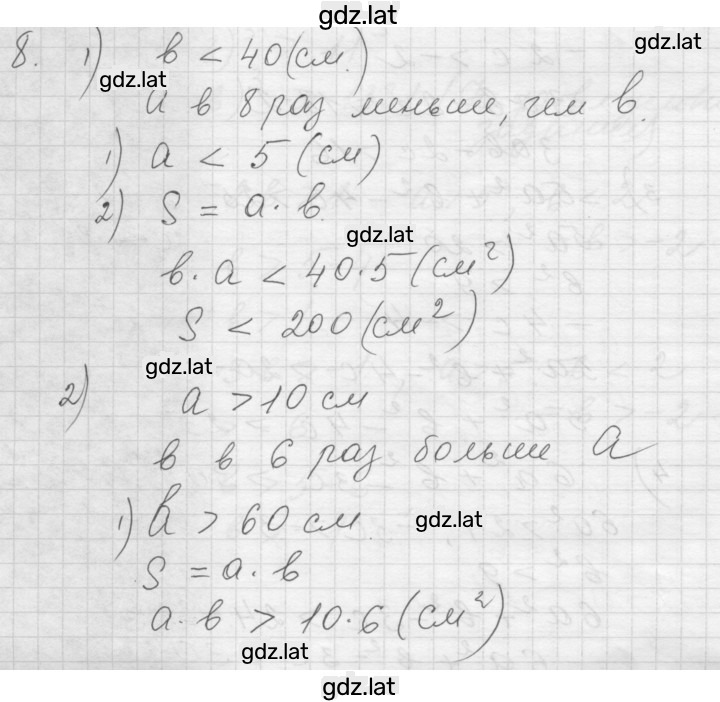 gdz.lat
8. 1) в < 40 (см.)
gdz.lat
gdz.lat
а в 8 раз меньше, чем в.
1) а < 5 (см)
2) S = а · в.
gdz.lat
в · а < 40 · 5 (см²)
S < 200 (см²)
gdz.lat
2) а > 10 см
в в 6 раз больше а
1) в > 60 см
gdz.lat
S = а · в
а · в > 10 · 6 (см²)
gdz.lat
gdz.lat